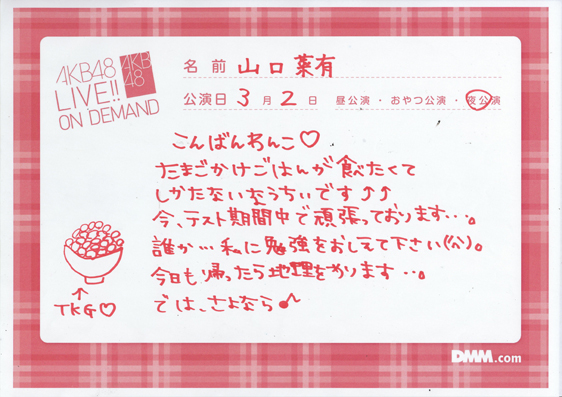 AKB48
LIVE!!
ON DEMAND
AKB
48
名前 山口菜有
公演日 3月2日 昼公演・おやつ公演・夜公演
こんばんわんこ♡
たまごかけごはんが食べたくて
しかたないなうちぃです↑↑
今、テスト期間中で頑張っております・・・。
誰か・・・私に勉強をおしえて下さい(^^)。
今日も帰ったら地理をやります・・・。
では、さよなら♪
↑
TKG♡
DMM.com